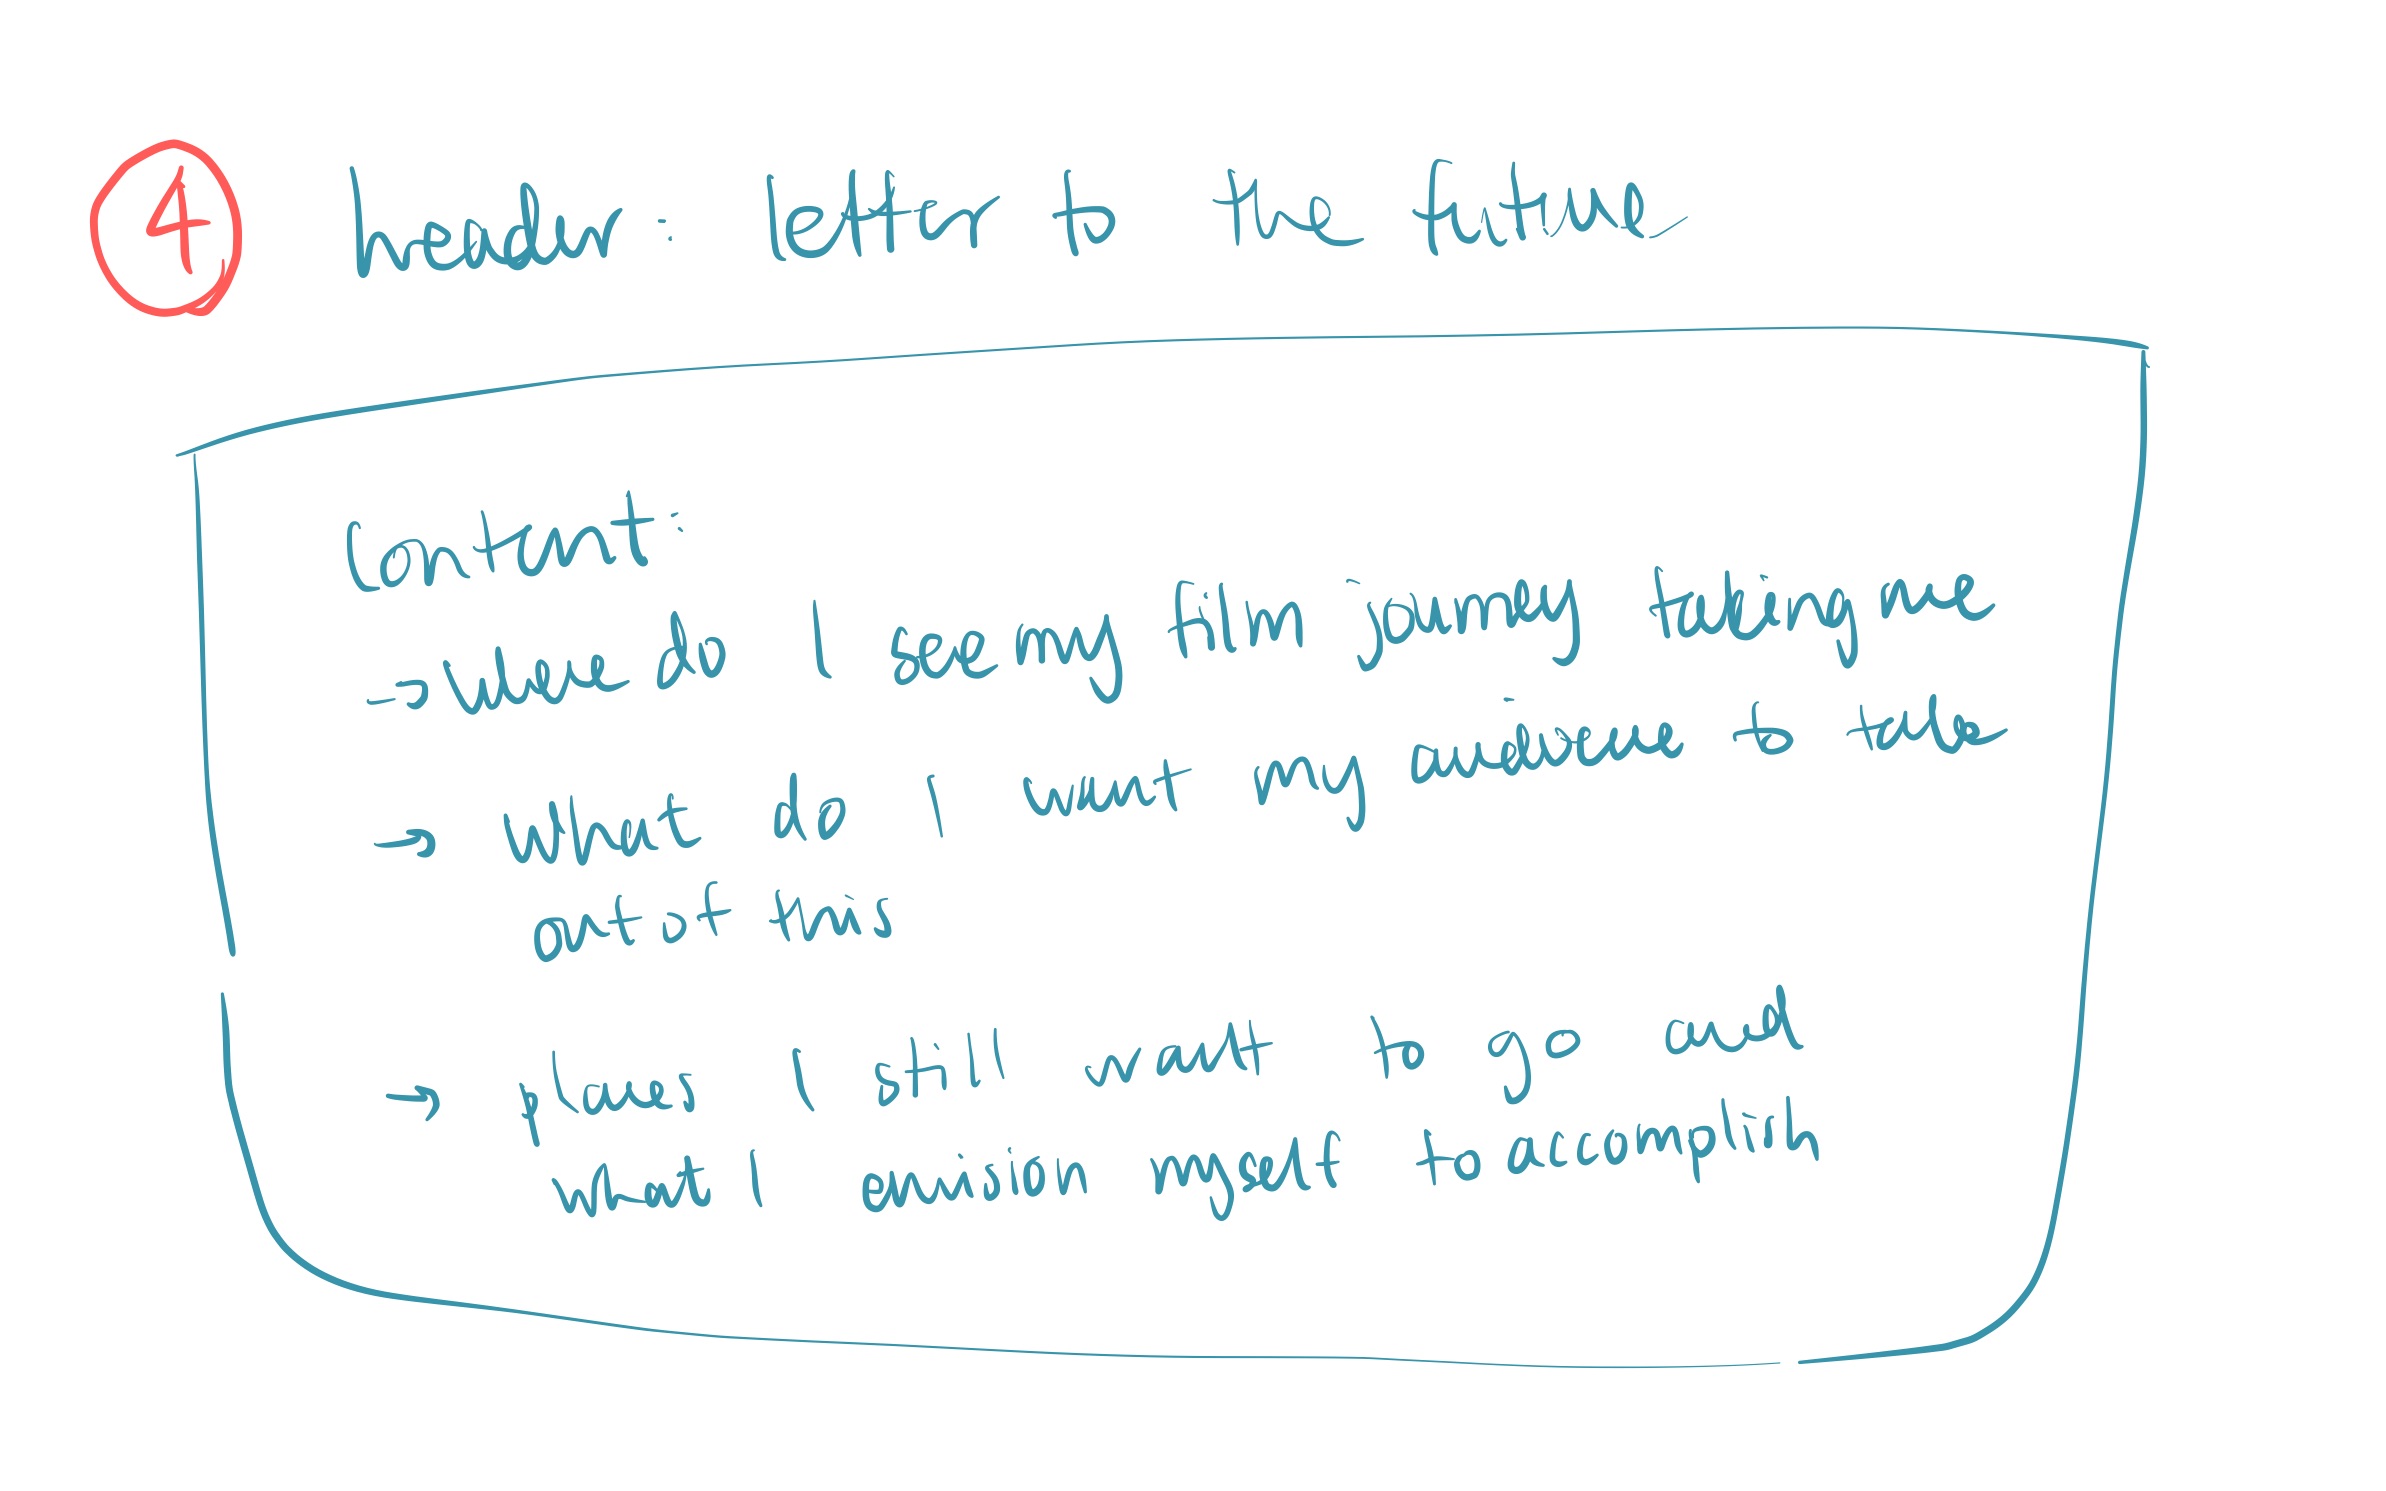 4 header : letter to the future
Content:
→ where do I see my film journey taking me
→ What do I want my audience to take
out of this
→ places I still want to go and
what I envision myself to accomplish